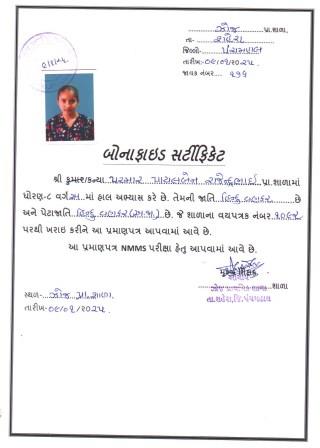 ઝોજ પ્રા.શાળા.
તા- શહેરા
જિલ્લો- પંચમહાલ
તારીખ:-૦૯/૦૧/૨૦૨૫
જાવક નંબર.... ૧૧૧
બોનાફાઇડ સર્ટીફિકેટ
શ્રી કુમાર/કન્યા પરમાર પાયલબેન રાજેન્દ્રભાઇ પ્રા.શાળામાં
ધોરણ-૮ વર્ગ અ માં હાલ અભ્યાસ કરે છે. તેમની જાતિ હિન્દુ વણકર છે
અને પેટાજાતિ હિન્દુ વણકર(અ.જા.) છે. જે શાળાના વયપત્રક નંબર
પરથી ખરાઇ કરીને આ પ્રમાણપત્ર આપવામાં આવે છે.
આ પ્રમાણપત્ર NMMS પરીક્ષા હેતુ આપવામાં આવે છે.
મુખ્ય શિક્ષક
શાળા
સ્થળ:- ઝોજ પ્રા.શાળા
ઝોજ પ્રાથમિક શાળા
તા.શહેરા, જિ.પંચમહાલ
તારીખ:-૦૯/૦૧/૨૦૨૫